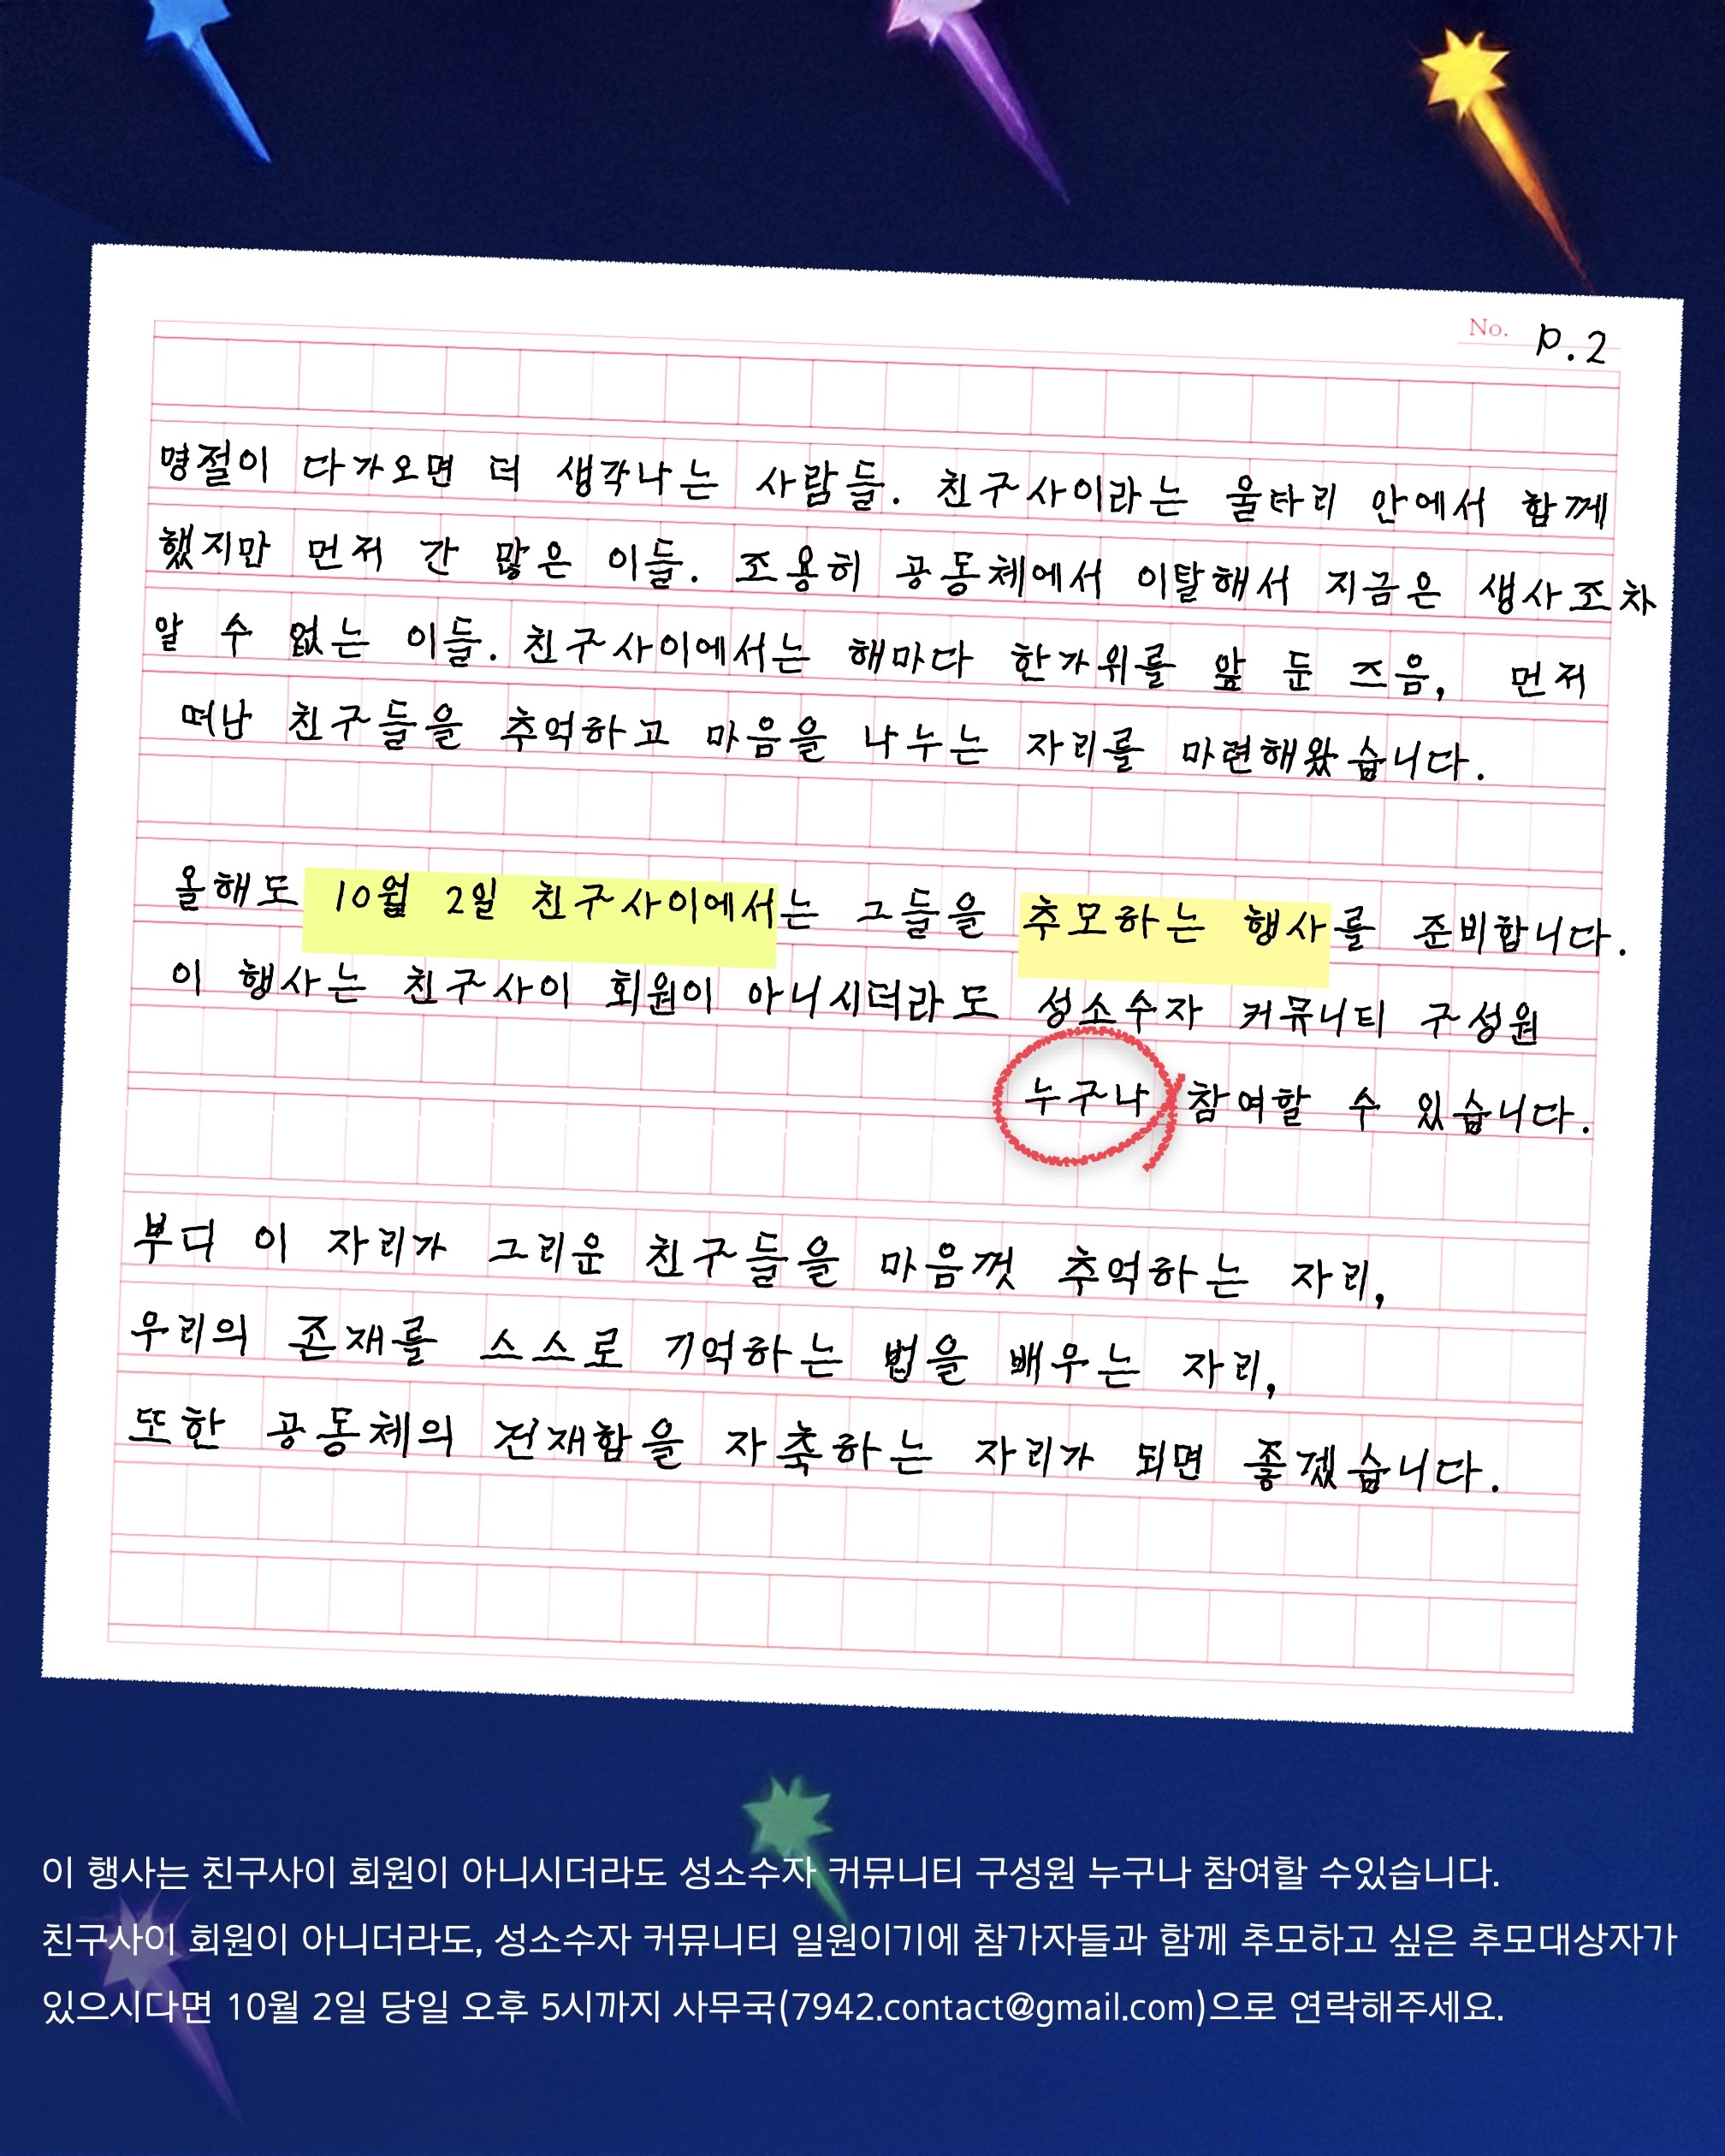 No. p.2
명절이 다가오면 더 생각나는 사람들. 친구사이라는 울타리 안에서 함께
했지만 먼저 간 많은 이들. 조용히 공동체에서 이탈해서 지금은 생사조차
알 수 없는 이들. 친구사이에서는 해마다 한가위를 앞 둔 즈음, 먼저
떠난 친구들을 추억하고 마음을 나누는 자리를 마련해왔습니다.
올해도 10월 2일 친구사이에서는 그들을 추모하는 행사를 준비합니다.
이 행사는 친구사이 회원이 아니시더라도 성소수자 커뮤니티 구성원
누구나 참여할 수 있습니다.
부디 이 자리가 그리운 친구들을 마음껏 추억하는 자리,
우리의 존재를 스스로 기억하는 법을 배우는 자리,
또한 공동체의 건재함을 자축하는 자리가 되면 좋겠습니다.
이 행사는 친구사이 회원이 아니시더라도 성소수자 커뮤니티 구성원 누구나 참여할 수있습니다.
친구사이 회원이 아니더라도, 성소수자 커뮤니티 일원이기에 참가자들과 함께 추모하고 싶은 추모대상자가
있으시다면 10월 2일 당일 오후 5시까지 사무국(7942.contact@gmail.com)으로 연락해주세요.